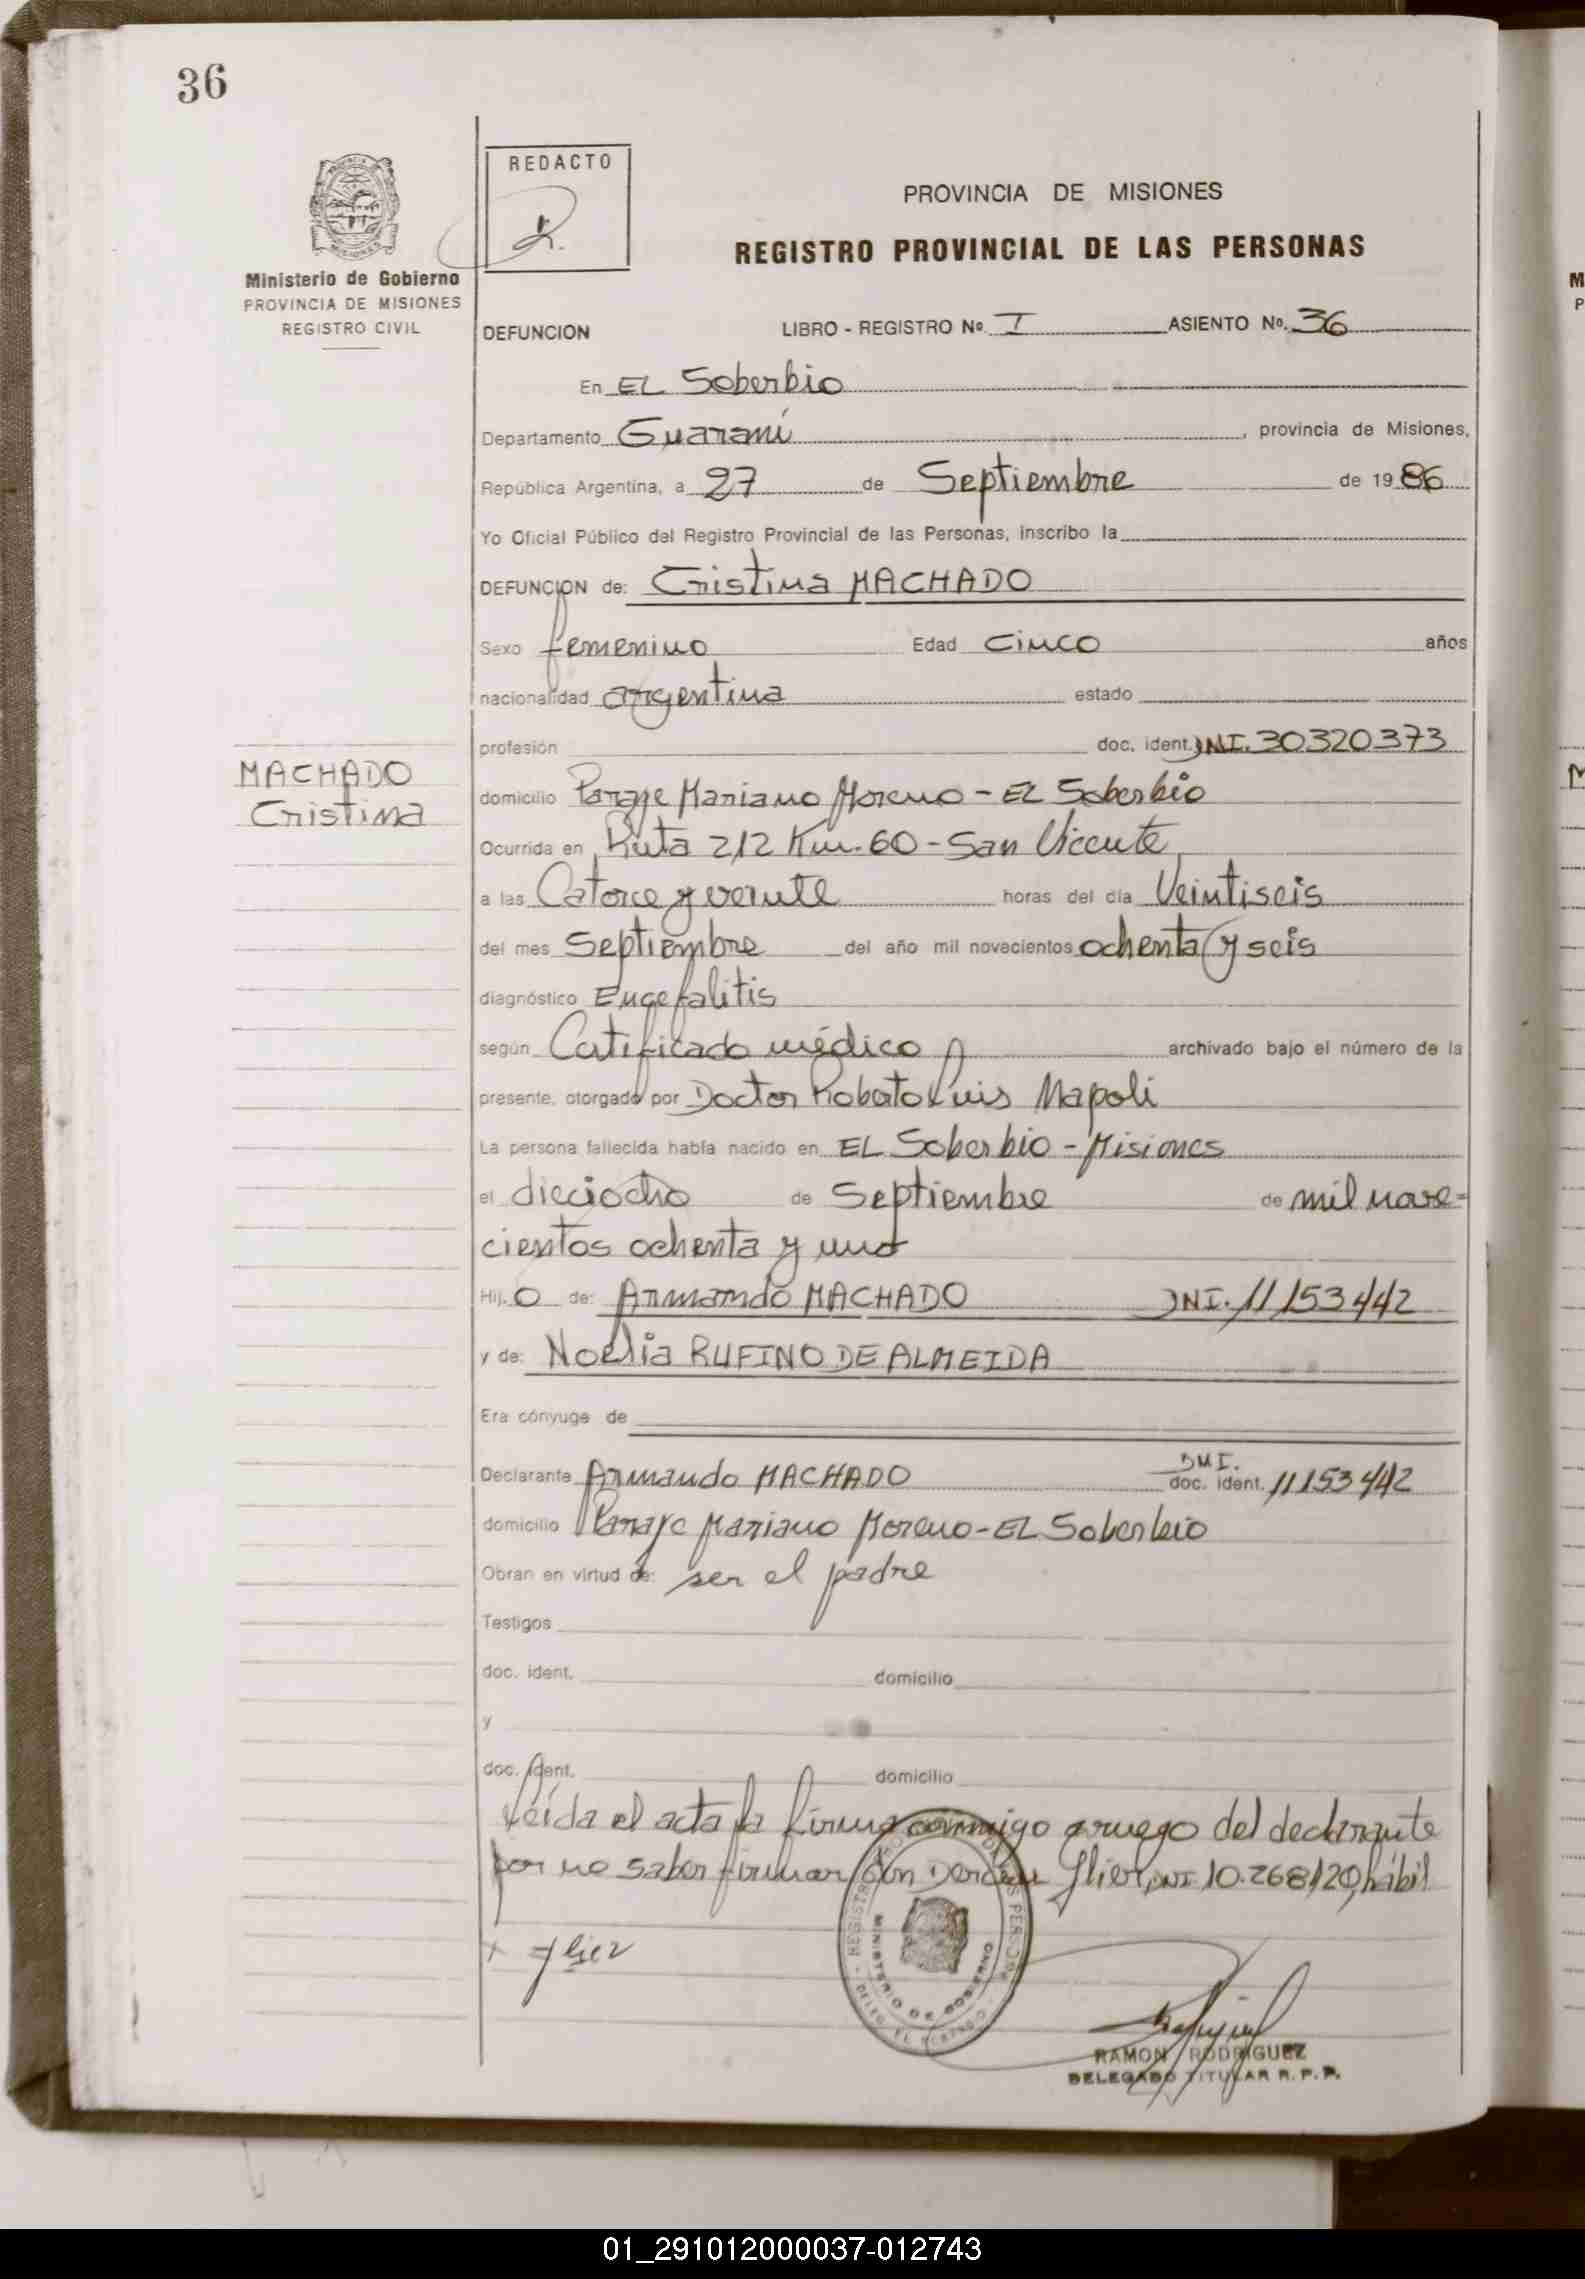 36
Ministerio de Gobierno
PROVINCIA DE MISIONES
REGISTRO CIVIL
REDACTO
PROVINCIA DE MISIONES
REGISTRO PROVINCIAL DE LAS PERSONAS
DEFUNCION LIBRO - REGISTRO Nº I ASIENTO Nº. 36
En EL Soberbio
Departamento Guaraní, provincia de Misiones,
República Argentina, a 27 de Septiembre de 1986
Yo Oficial Público del Registro Provincial de las Personas, inscribo la
DEFUNCION de: Cristina MACHADO
Sexo femenino Edad Cinco años
nacionalidad argentina estado
profesión doc. ident. DNI. 30320373
MACHADO
Cristina
domicilio Paraje Mariano Moreno - EL Soberbio
Ocurrida en Ruta 212 Km. 60 - San Vicente
a las Catorce y veinte horas del día Veintiseis
del mes Septiembre del año mil novecientos ochenta y seis
diagnóstico Encefalitis
según Certificado médico archivado bajo el número de la
presente, otorgado por Doctor Roberto Luis Napoli
La persona fallecida había nacido en EL Soberbio - Misiones
el dieciocho de Septiembre de mil nove=
cientos ochenta y uno
Hij. o de: Armando MACHADO DNI. 11153442
y de: Noelia RUFINO DE ALMEIDA
Era cónyuge de
Declarante Armando MACHADO DNI. doc. ident. 11153442
domicilio Paraje Mariano Moreno - EL Soberbio
Obran en virtud de: ser el padre
Testigos
doc. ident. domicilio
y
doc. ident. domicilio
Leída el acta la firma conmigo a ruego del declarante
por no saber firmar Don Glier, DNI 10.268120, hábil
x Glier
REGISTRO PERSONAS
MINISTERIO DE GOBIERNO
DELEG. EL SOBERBIO
RAMON RODRIGUEZ
DELEGADO TITULAR R. P. P.
01_291012000037-012743